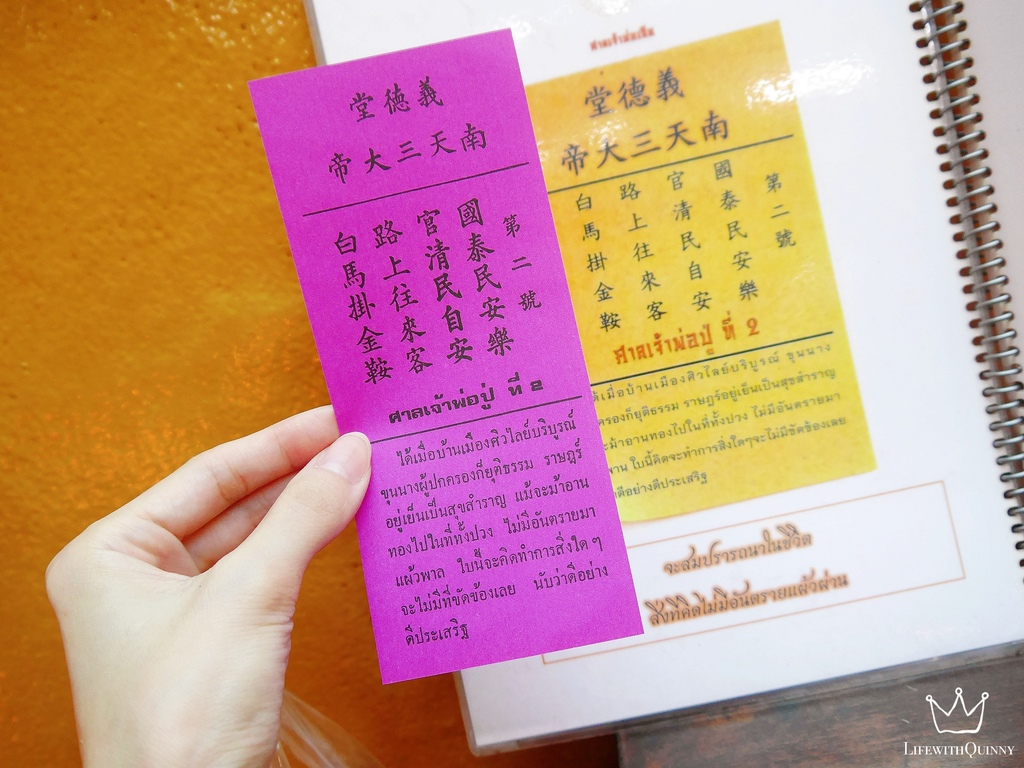 義德堂
南天三大帝
第二號
國泰民安樂
官清民自安
路上往來客
白馬掛金鞍
ศาลเจ้าพ่อปู่ ที่ ๒
ได้เมื่อบ้านเมืองศิวไลย์บริบูรณ์
ขุนนางผู้ปกครองก็ยุติธรรม ราษฎร์
อยู่เย็นเป็นสุขสำราญ แม้จะม้าอาน
ทองไปในที่ทั้งปวง ไม่มีอันตรายมา
แผ้วพาล ใบนี้จะคิดทำการสิ่งใดๆ
จะไม่มีที่ขัดข้องเลย นับว่าดีอย่าง
ดีประเสริฐ
ศาลเจ้าพ่อเสือ
義德堂
南天三大帝
第二號
國泰民安樂
官清民自安
路上往來客
白馬掛金鞍
ศาลเจ้าพ่อปู่ ที่ 2
ได้เมื่อบ้านเมืองศิวไลย์บริบูรณ์ ขุนนาง
ครองก็ยุติธรรม ราษฎร์อยู่เย็นเป็นสุขสำราญ
จะม้าอานทองไปในที่ทั้งปวง ไม่มีอันตรายมา
พาน ใบนี้คิดจะทำการสิ่งใดๆจะไม่มีขัดข้องเลย
ดีอย่างดีประเสริฐ
จะสมปรารถนาในชีวิต
สิ่งที่คิดไม่มีอันตรายแผ้วผ่าน
LIFEWITHQUINNY